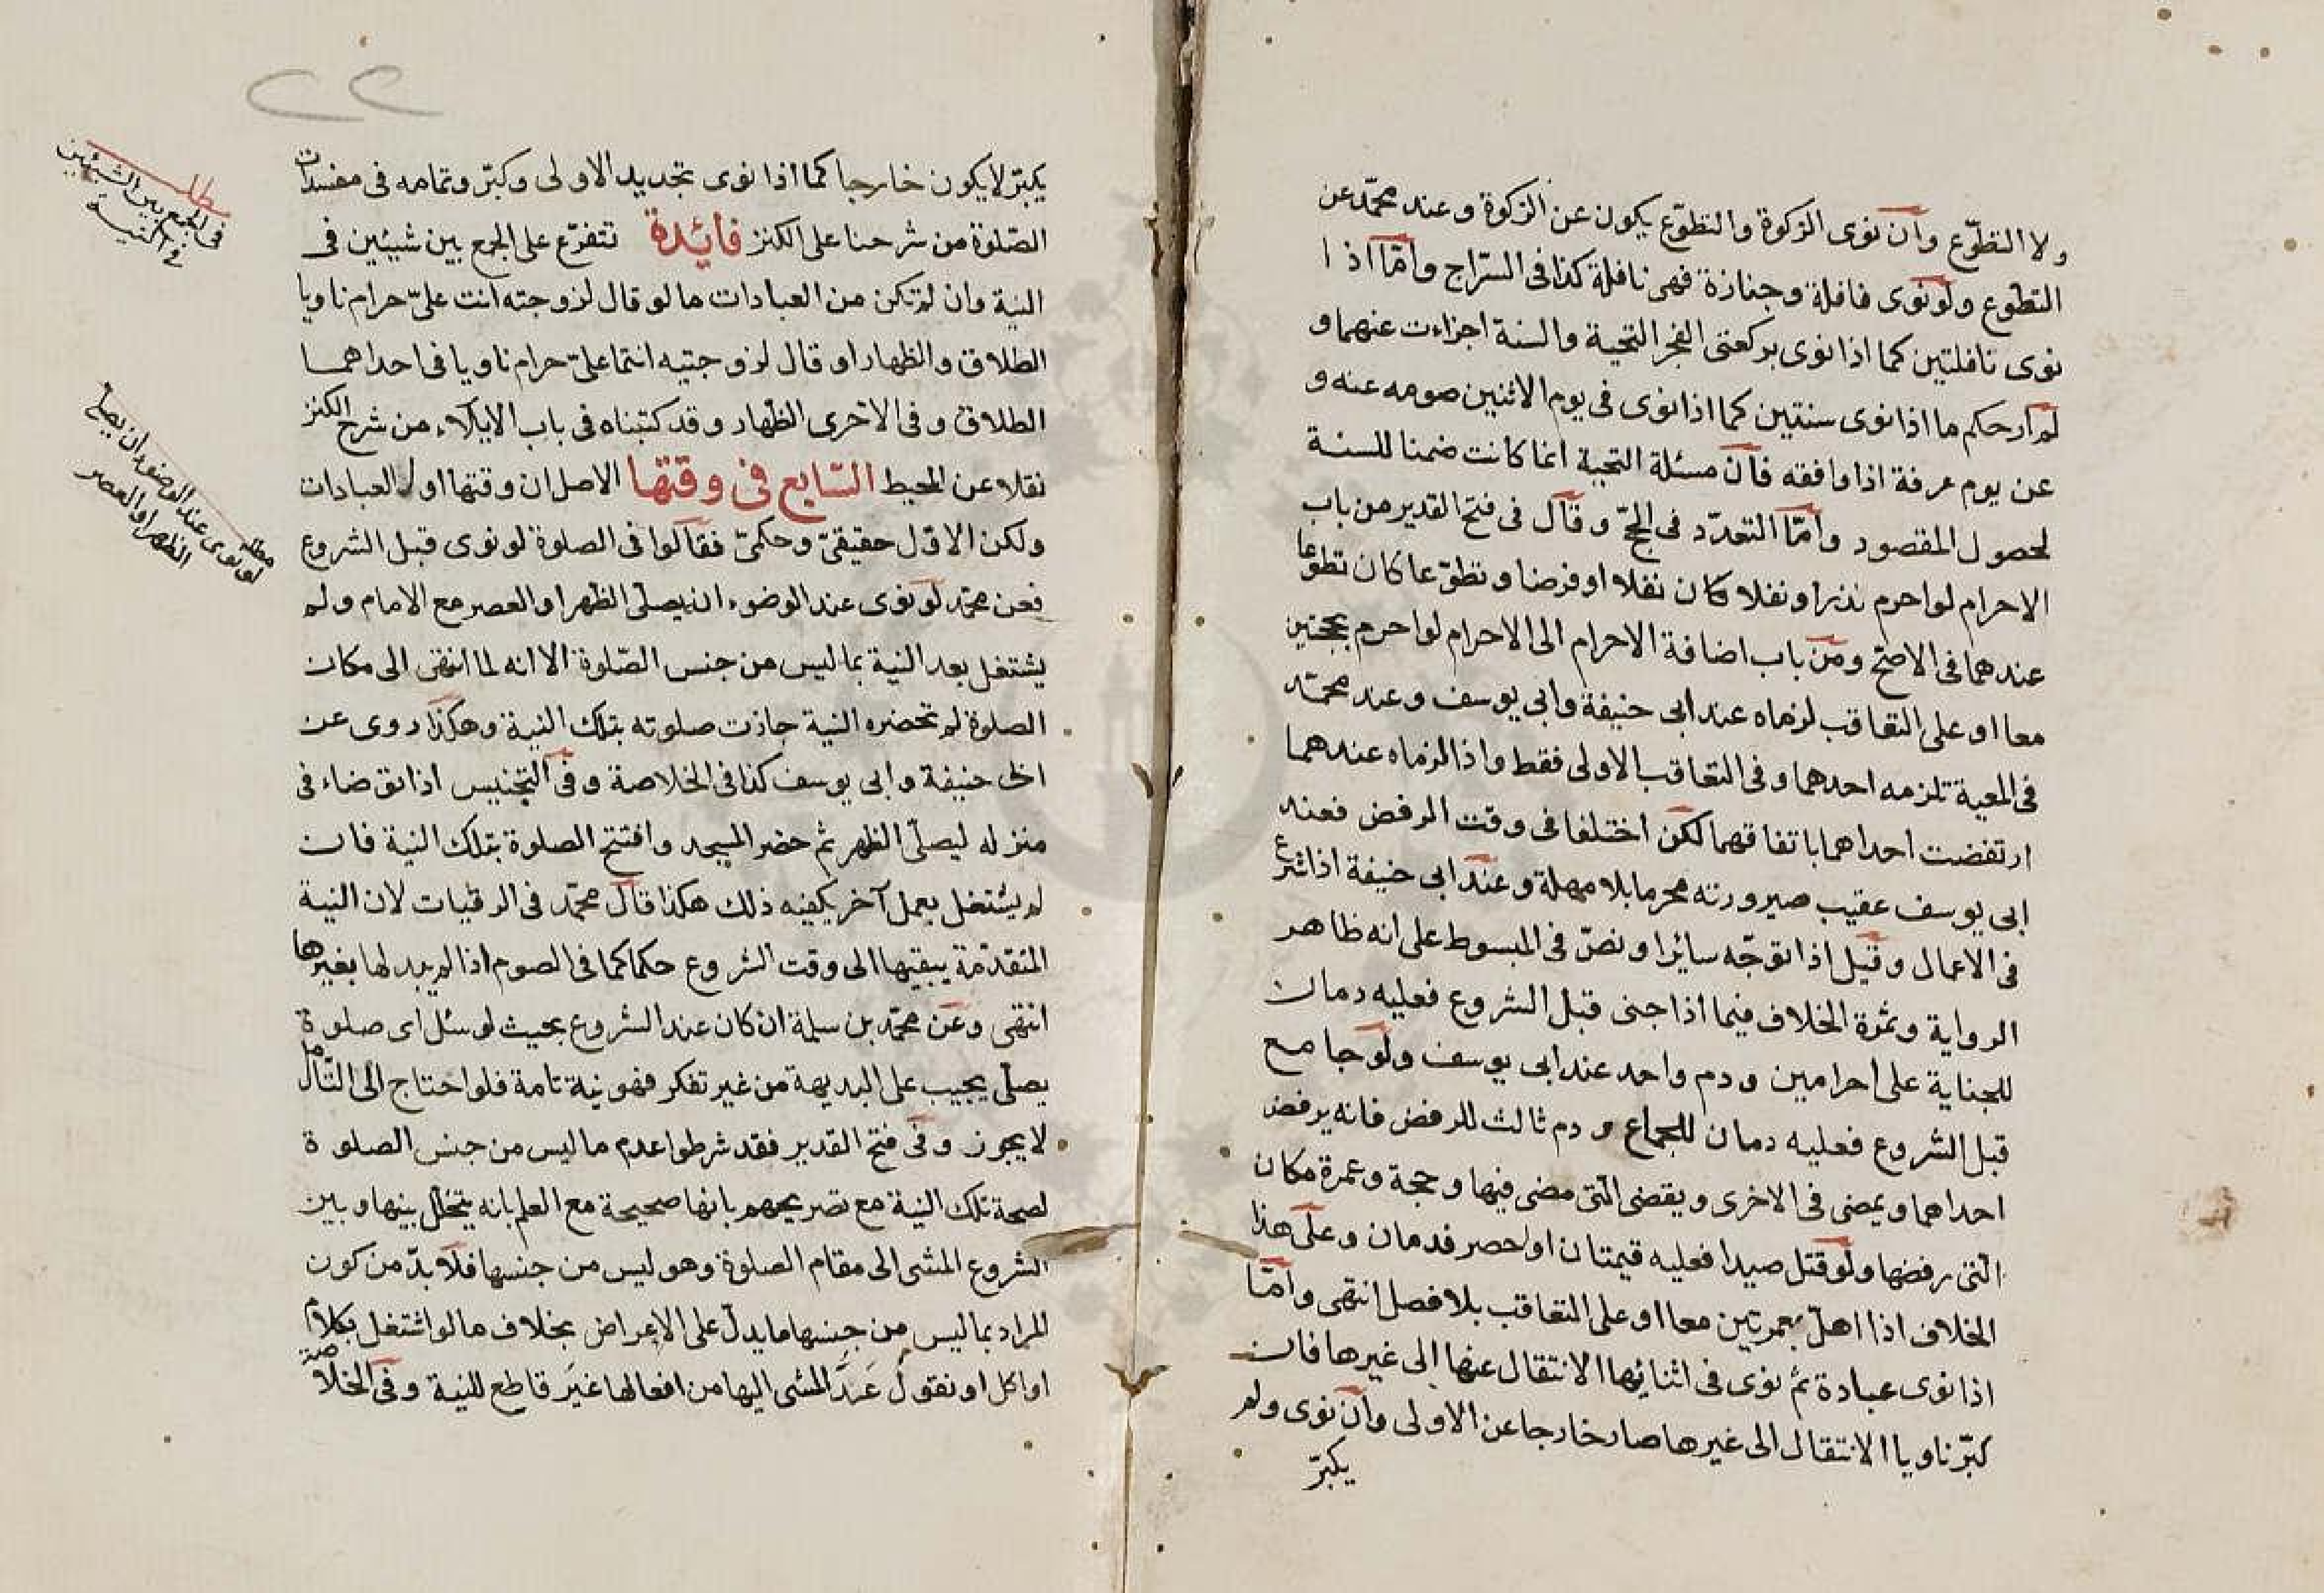 ولا التطوّع وان نوى الزكوة والتطوّع يكون عن الزكوة وعند محمّد عن
التطوع ولو نوى نافلة وجنازة فهى نافلة كذا فى السّراج وامّا اذا
نوى نافلتين كما اذا نوى بركعتى الفجر التحية والسنة اجزاءت عنهما و
لم ار حكم ما اذا نوى سنتين كما اذا نوى فى يوم الاثنين صومه عنه و
عن يوم عرفة اذا وافقه فان مسئلة التحية انما كانت ضمنا للسنة
لحصول المقصود وامّا التعدّد فى الحجّ وقال فى فتح القدير من باب
الاحرام لو احرم نذرا ونفلا كان نفلا او فرضا وتطوّعا كان تطوعا
عندهما فى الاصحّ ومن باب اضافة الاحرام الى الاحرام لو احرم بحجتين
معا او على التعاقب لزماه عند ابى حنيفة وابى يوسف وعند محمّد
فى المعية تلزمه احدهما وفى التعاقب الاولى فقط واذا لزماه عندهما
ارتفضت احداهما باتفاقهما لكن اختلفا فى وقت الرفض فعند
ابى يوسف عقيب صيرورته محرما بلا مهلة وعند ابى حنيفة اذا شرع
فى الاعمال وقيل اذا توجّه سائرا ونصّ فى المبسوط على انه ظاهر
الرواية وثمرة الخلاف فيما اذا جنى قبل الشروع فعليه دمان
للجناية على احرامين ودم واحد عند ابى يوسف ولو جامع
قبل الشروع فعليه دمان للجماع و دم ثالث للرفض فانه يرفض
احداهما ويمضى فى الاخرى ويقضى التى مضى فيها وحجة وعمرة مكان
التى رفضها ولو قتل صيدا فعليه قيمتان او احصر فدمان وعلى هذا
الخلاف اذا اهلّ بعمرتين معا او على التعاقب بلا فصل انتهى وامّا
اذا نوى عبادة ثم نوى فى اثنائها الانتقال عنها الى غيرها فان
كبّر ناويا الانتقال الى غيرها صار خارجا عن الاولى وان نوى ولم
يكبّر
٢٢
يكبّر لا يكون خارجا كما اذا نوى تجديد الاولى وكبّر وتمامه فى مفسدات
الصّلوة من شرحنا على الكنز فائدة تتفرّع على الجمع بين شيئين فى
النية وان لم تكن من العبادات ما لو قال لزوجته انت علىّ حرام ناويا
الطلاق والظهار او قال لزوجتيه انتما علىّ حرام ناويا فى احداهما
الطلاق وفى الاخرى الظهار وقد كتبناه فى باب الايلاء من شرح الكنز
نقلا عن المحيط السّابع فى وقتها الاصل ان وقتها اول العبادات
ولكن الاوّل حقيقىّ وحكمىّ فقالوا فى الصلوة لو نوى قبل الشروع
فعن محمّد لو نوى عند الوضوء ان يصلّى الظهر او العصر مع الامام ولم
يشتغل بعد النية بما ليس من جنس الصّلوة الا انه لما انتهى الى مكان
الصلوة لم تحضره النية جازت صلوته بتلك النية وهكذا روى عن
ابى حنيفة وابى يوسف كذا فى الخلاصة وفى التجنيس اذا توضاء فى
منزله ليصلّى الظهر ثم حضر المسجد وافتتح الصلوة بتلك النية فان
لم يشتغل بعمل آخر يكفيه ذلك هكذا قال محمّد فى الرقيات لان النية
المتقدّمة يبقيها الى وقت الشروع حكما كما فى الصوم اذا لم يبدلها بغيرها
انتهى وعن محمّد بن سلمة ان كان عند الشروع بحيث لو سئل اى صلوة
يصلّى يجيب على البديهة من غير تفكر فهو نية تامة فلو احتاج الى التأمل
لا يجوز وفى فتح القدير فقد شرطوا عدم ما ليس من جنس الصلوة
لصحة تلك النية مع تصريحهم بانها صحيحة مع العلم بانه يتخلّل بينها وبين
الشروع المشى الى مقام الصلوة وهو ليس من جنسها فلا بدّ من كون
المراد بما ليس من جنسها ما يدلّ على الاعراض بخلاف ما لو اشتغل بكلام
او اكل او نقول عَدَّ المشى اليها من افعالها غَيرَ قاطع للنية وفى الخلاصة
مطلب
فى الجمع بين الشيئين
فى النية
مطلب
لو نوى عند الوضوء ان يصلى
الظهر او العصر